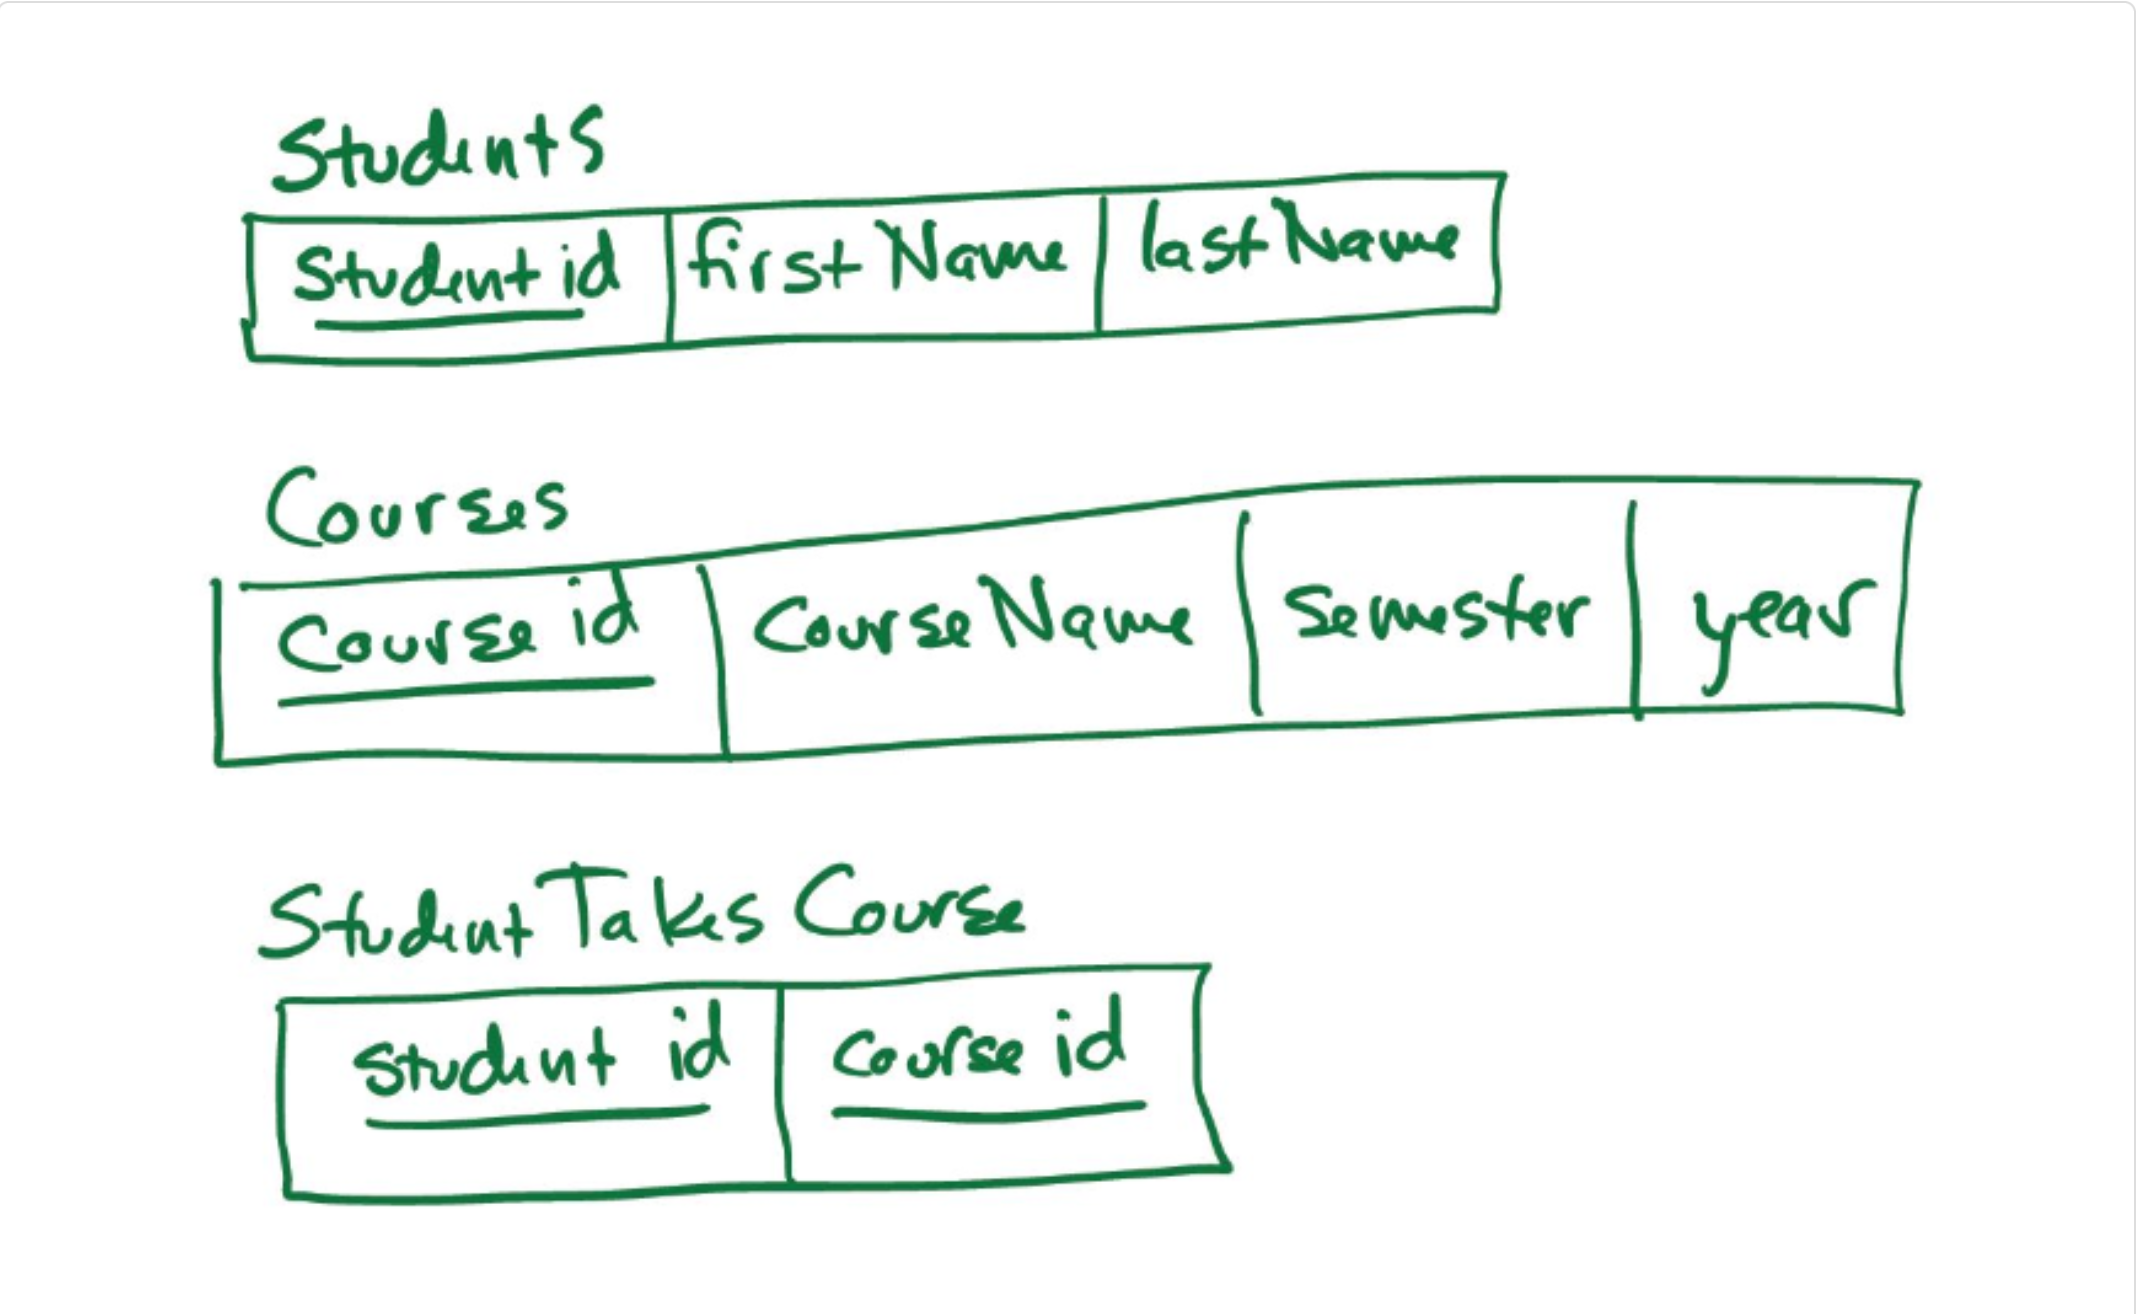 Students
Student id firstName lastName
Courses
Course id CourseName Semester year
StudentTakesCourse
student id course id